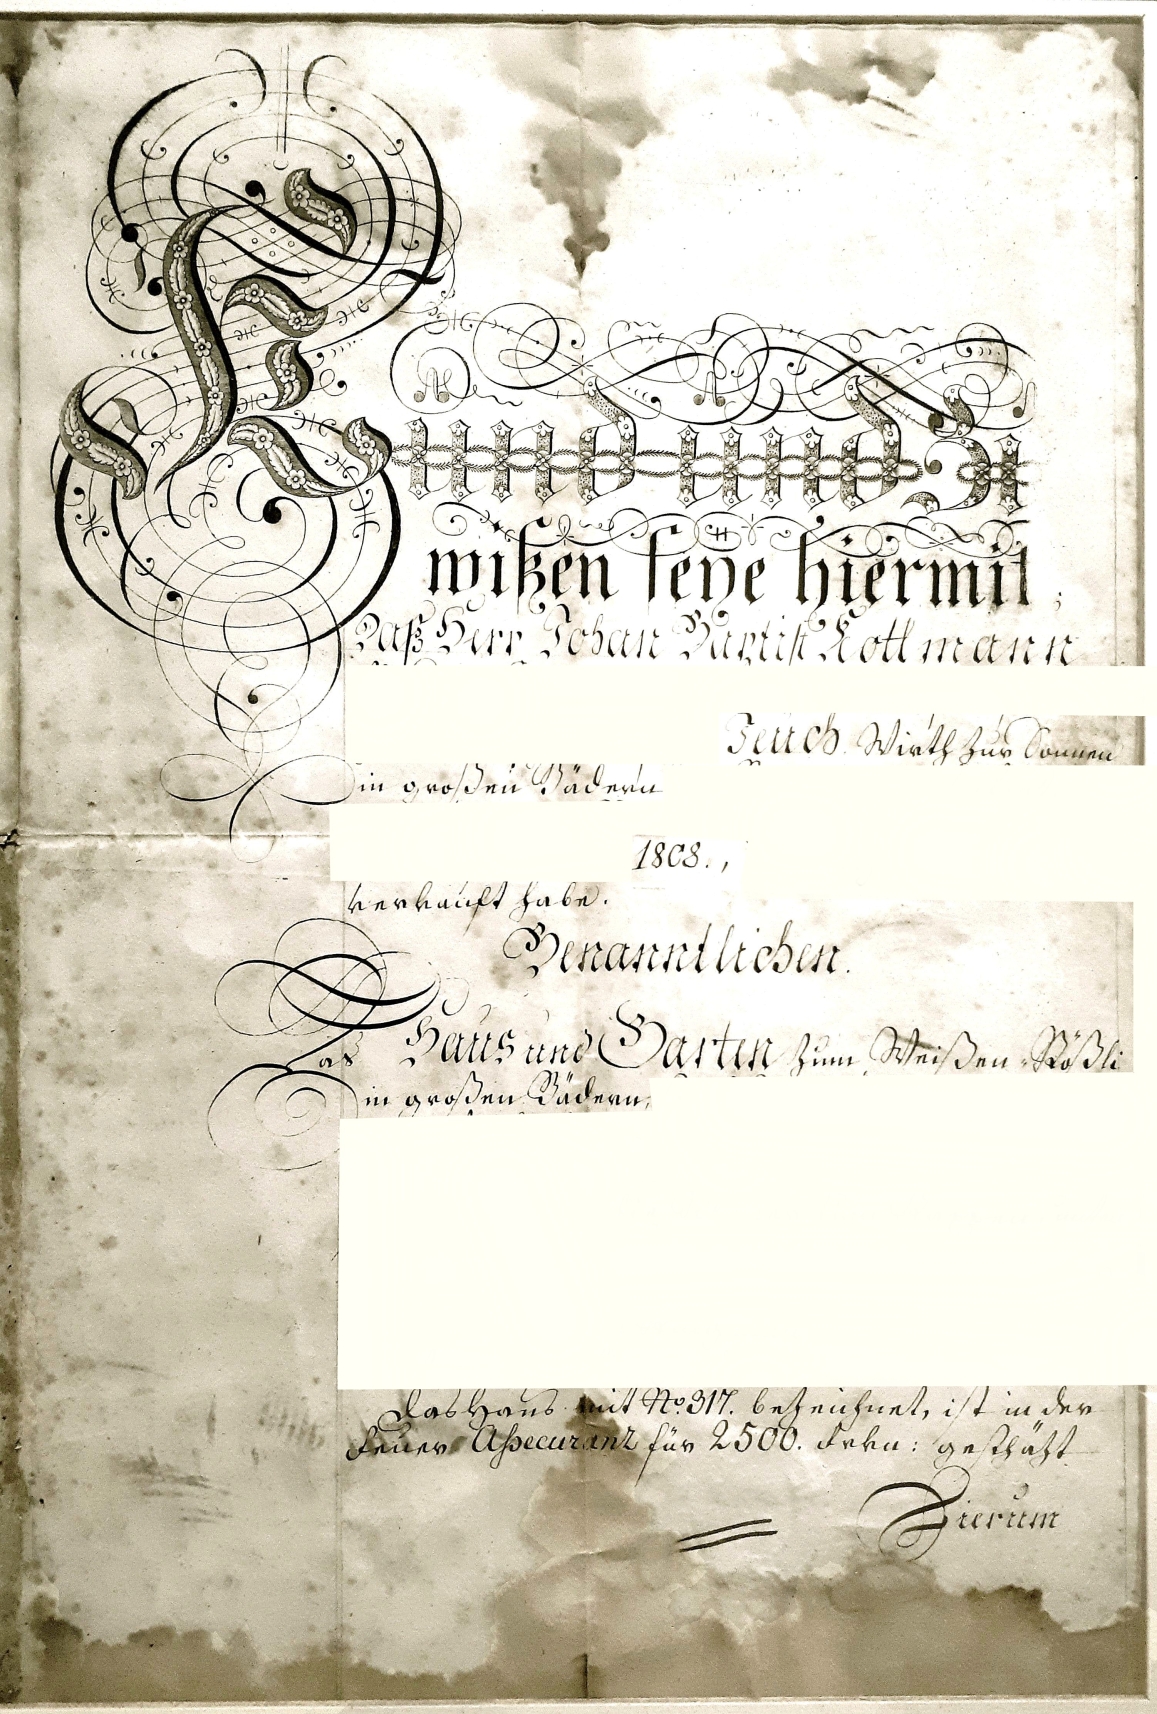 Kund und Zu
wißen seye hiermit,
Daß Herr Johan Baptist Kottmann
Wirth zur Sonnen
in großen Bädern
1808.,
verkauft habe.
Benanntlichen.
Das Haus und Garten zum Weißen Rößli
in großen Bädern,
das Haus mit No. 317. bezeichnet, ist in der
Feuer Assecuranz für 2500. Frkn: geschäzt
Hierum